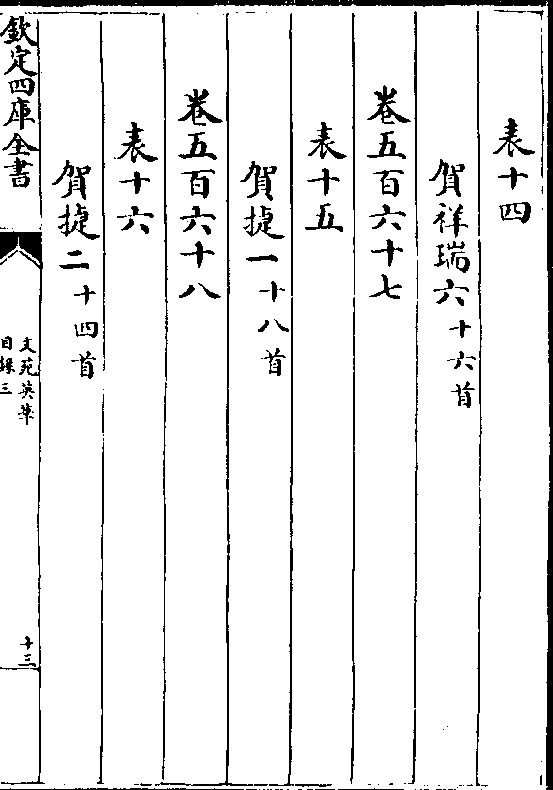 表十四
賀祥瑞六十六首
卷五百六十七
表十五
賀捷一十八首
卷五百六十八
表十六
賀捷二十四首
欽定四庫全書
文苑英華
目錄三
十三